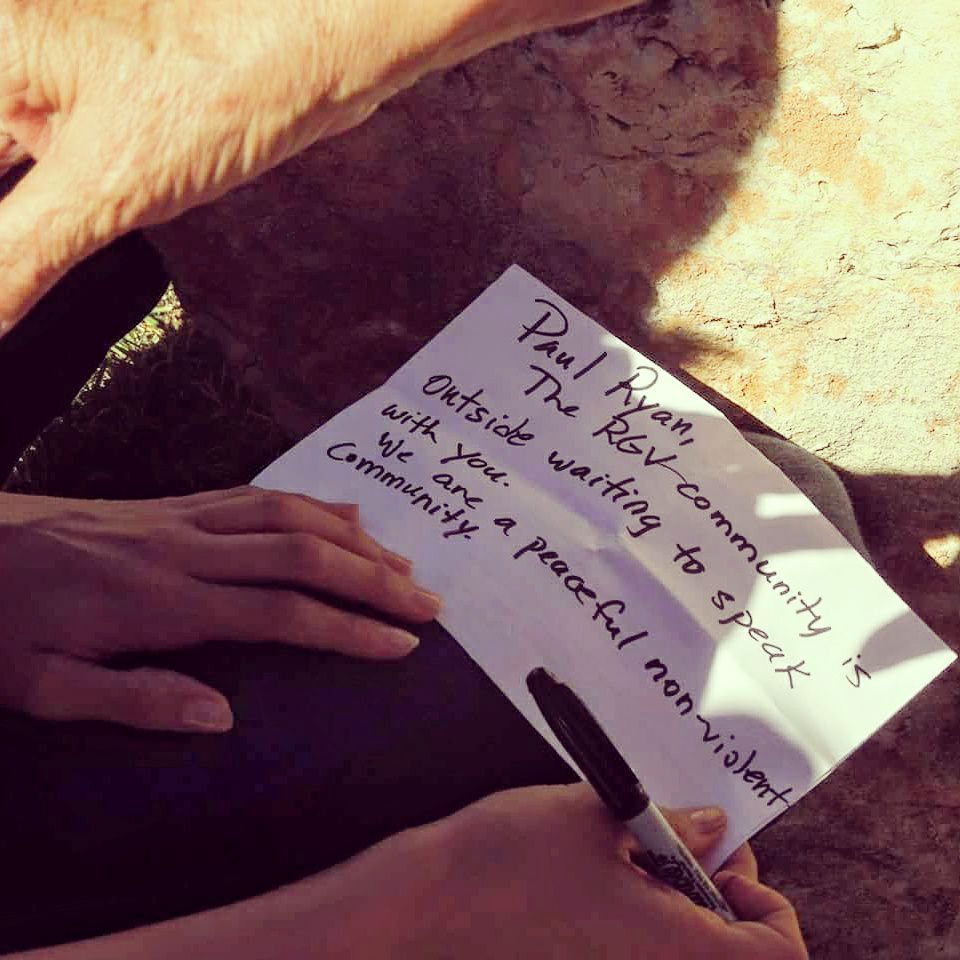 Paul Ryan,
The RGV community is
Outside waiting to speak
with you.
We are a peaceful non-violent
Community.